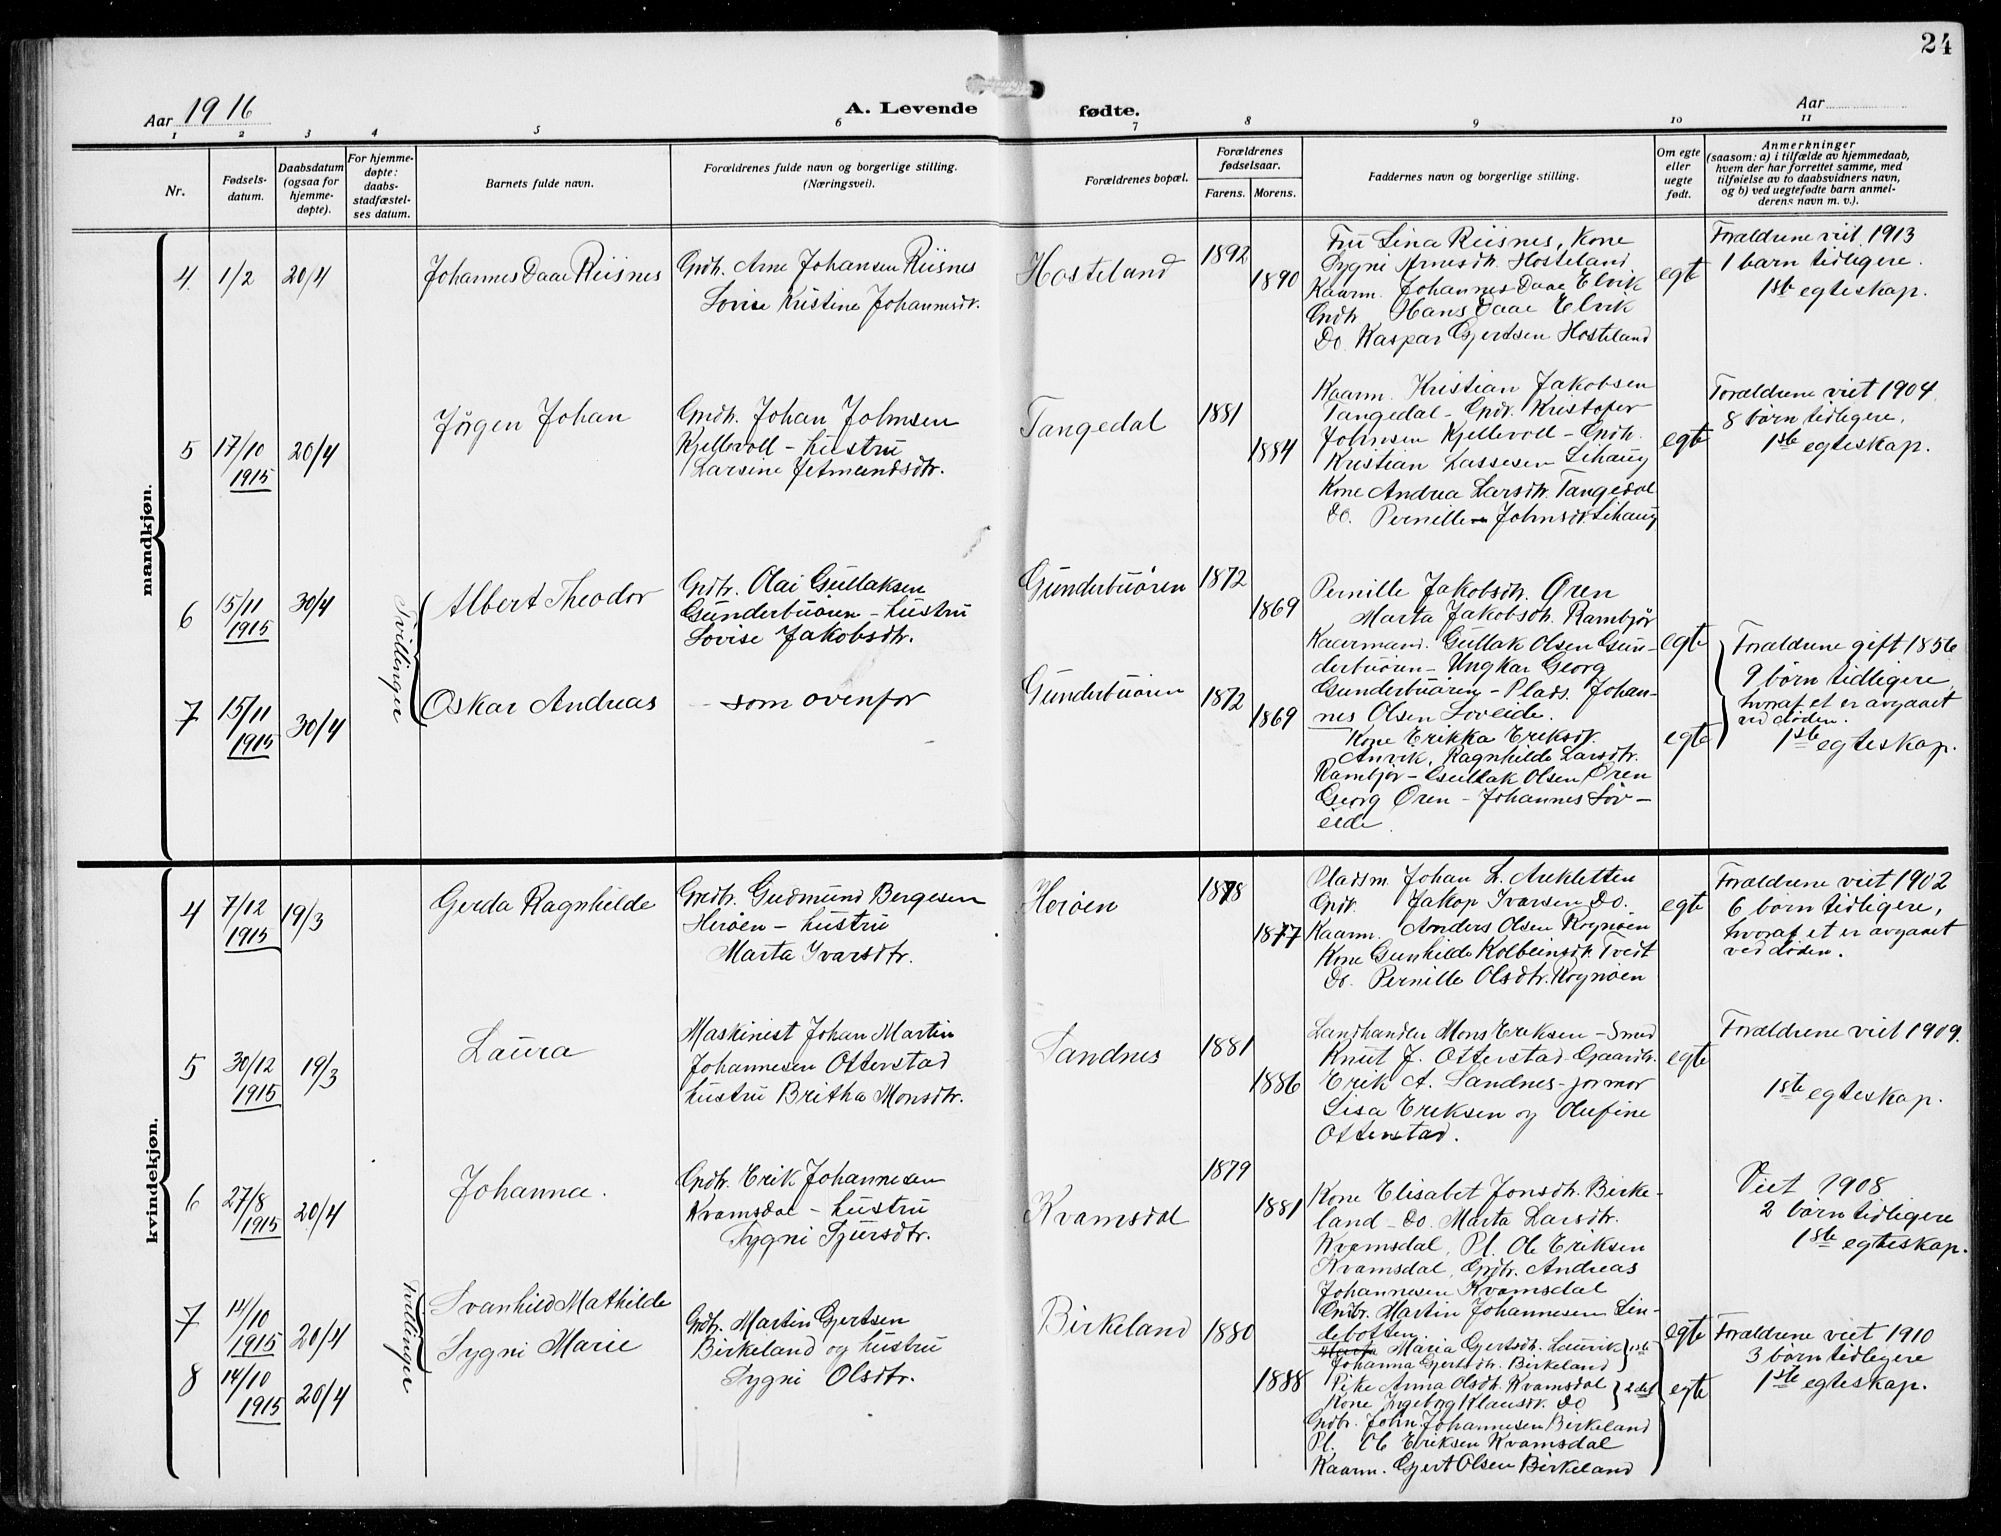 24
Aar 1916
A. Levende fødte.
Aar
1 2 3 4 5 6 7 8 9 10 11
Nr.
Fødsels-
datum.
Daabsdatum
(ogsaa for
hjemme-
døpte).
For hjemme-
døpte:
daabs-
stadfæstel-
ses datum.
Barnets fulde navn.
Forældrenes fulde navn og borgerlige stilling.
(Næringsvei).
Forældrenes bopæl.
Forældrenes
fødselsaar.
Farens. Morens.
Faddernes navn og borgerlige stilling.
Om egte
eller
uegte
født.
Anmerkninger
(saasom: a) i tilfælde av hjemmedaab,
hvem der har forrettet samme, med
tilføielse av to daabsvidners navn,
og b) ved uegtefødte barn anmel-
derens navn m. v.).
mandkjøn.
4 1/2 20/4
Johannes Daae Riisnes
Grdbr. Arne Johansen Riisnes
Lovise Kristine Johannesdtr.
Hosteland
1892
1890
Fru Lina Riisnes, Kone
Sygni Arnesdtr. Hosteland
Kaarm. Johannes Daae Elvik
Grdbr. Hans Daae Elvik
Do. Kaspar Gjertsen Hosteland
egte
Forældrene viet 1913
1 barn tidligere.
1ste egteskap.
5 17/10 1915 20/4
Jørgen Johan
Grdbr. Johan Johnsen
Kjellevoll - hustru
Larsine Jetmundsdtr.
Tangedal
1881
1884
Kaarm. Kristian Jakobsen
Tangedal - Grdbr. Kristofer
Johnsen Kjellevoll - Grdbr.
Kristian Lassesen Lihaug
Kone Andrea Larsdtr. Tangedal
Do. Pernille Johnsdtr. Lihaug
egte
Forældrene viet 1904.
8 børn tidligere.
1ste egteskap.
6 15/11 1915 30/4
Tvillinger
Albert Theodor
Grdbr. Olai Gullaksen
Gunderbuøren - hustru
Lovise Jakobsdtr.
Gunderbuøren
1872
1869
Pernille Jakobsdtr. Øren
Marta Jakobsdtr. Rambjør
Kaarmand. Gullak Olsen Gun-
derbuøren - Ungkar Georg
Gunderbuøren - Plads. Johan-
nes Olsen Løveide.
egte
Forældrene gift 1856
9 børn tidligere,
hvoraf et er avgaaet
ved døden.
1ste egteskap.
7 15/11 1915 30/4
Oskar Andreas
- som ovenfor
Gunderbuøren
1872
1869
Kone Erikka Eriksdtr.
Anvik, Ragnhilde Larsdtr.
Rambjør - Gullak Olsen Øren
Georg Øren - Johannes Løv-
eide.
egte
kvindekjøn.
4 7/12 1915 19/3
Gerda Ragnhilde
Grdbr. Gudmund Bergesen
Herøen - hustru
Marta Ivarsdtr.
Herøen
1878
1877
Pladsm. Johan L. Arekletten
Grdbr. Jakop Ivarsen Do.
Kaarm. Anders Olsen Rognøen
Kone Gunhilde Kolbeinsdtr. Tveit
Do. Pernille Olsdtr. Rognøen
egte
Forældrene viet 1902
6 børn tidligere,
hvoraf et er avgaaet
ved døden.
5 30/12 1915 19/3
Laura
Maskinist Johan Martin
Johannesen Otterstad
hustru Britha Monsdtr.
Sandnes
1881
1886
Landhandler Mons Eriksen - Smed
Knut J. Otterstad - Gaardbr.
Erik A. Sandnes - jormor
Lisa Eriksen og Olufine
Otterstad.
egte
Forældrene viet 1909.
1ste egteskap.
6 27/8 1915 20/4
Johanna.
Grdbr. Erik Johannesen
Kvamsdal - hustru
Sygni Sjursdtr.
Kvamsdal
1879
1881
Kone Elisabet Jonsdtr. Birke-
land - Do. Marta Larsdtr.
Kvamsdal, Pl. Ole Eriksen
Kvamsdal, Grdbr. Andreas
Johannesen Kvamsdal
Grdbr. Martin Johannesen Lin-
debotten.
Viet 1908
2 børn tidligere
1ste egteskap.
7 14/10 1915 20/4
Tvillinger
Svanhild Mathilde
Grdbr. Martin Gjertsen
Birkeland og hustru
Sygni Olsdtr.
Birkeland
1880
1888
Maria Gjertsdtr. Laurik
Johanna Gjertsdtr. Birkeland } 1ste
egte
Forældrene viet 1910
3 børn tidligere
1ste egteskap.
8 14/10 1915 20/4
Sygni Marie
Pike Anna Olsdtr. Kvamsdal
Kone Ingeborg Klausdtr. Do } 2det
Grdbr. John Johannesen Birkeland
Pl. Ole Eriksen Kvamsdal
Kaarm. Gjert Olsen Birkeland
egte